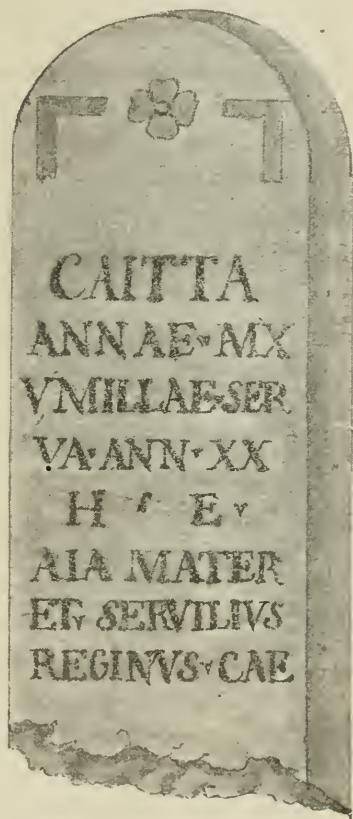 CAITTA
ANNAE·MX
VMILLAE·SER
VA·ANN·XX
H · E ·
AIA MATER
ET· SERVILIVS
REGINVS·CAE